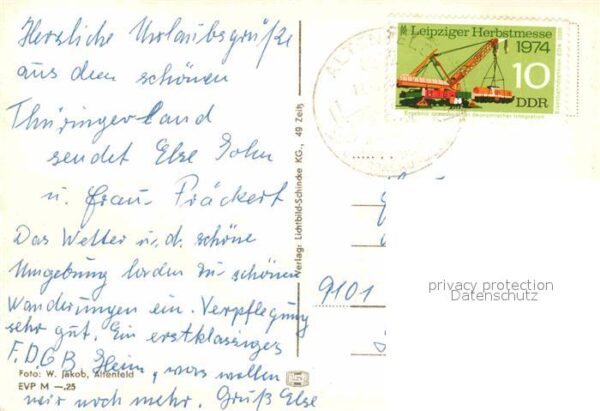 Herzliche Urlaubsgrüße
aus dem schönen
Thüringer Land
sendet Else John
u. Frau Präckert
Das Wetter u. d. schöne
Umgebung laden zu schönen
Wanderungen ein. Verpflegung
sehr gut. Ein erstklassiges
F.D.G.B. Heim, was wollen
wir noch mehr. Gruß Else
Foto: W. Jakob, Altenfeld
EVP M —.25
Verlag: Lichtbild-Schincke KG., 49 Zeitz
Leipziger Herbstmesse
1974
10
DDR
9101
privacy protection
Datenschutz